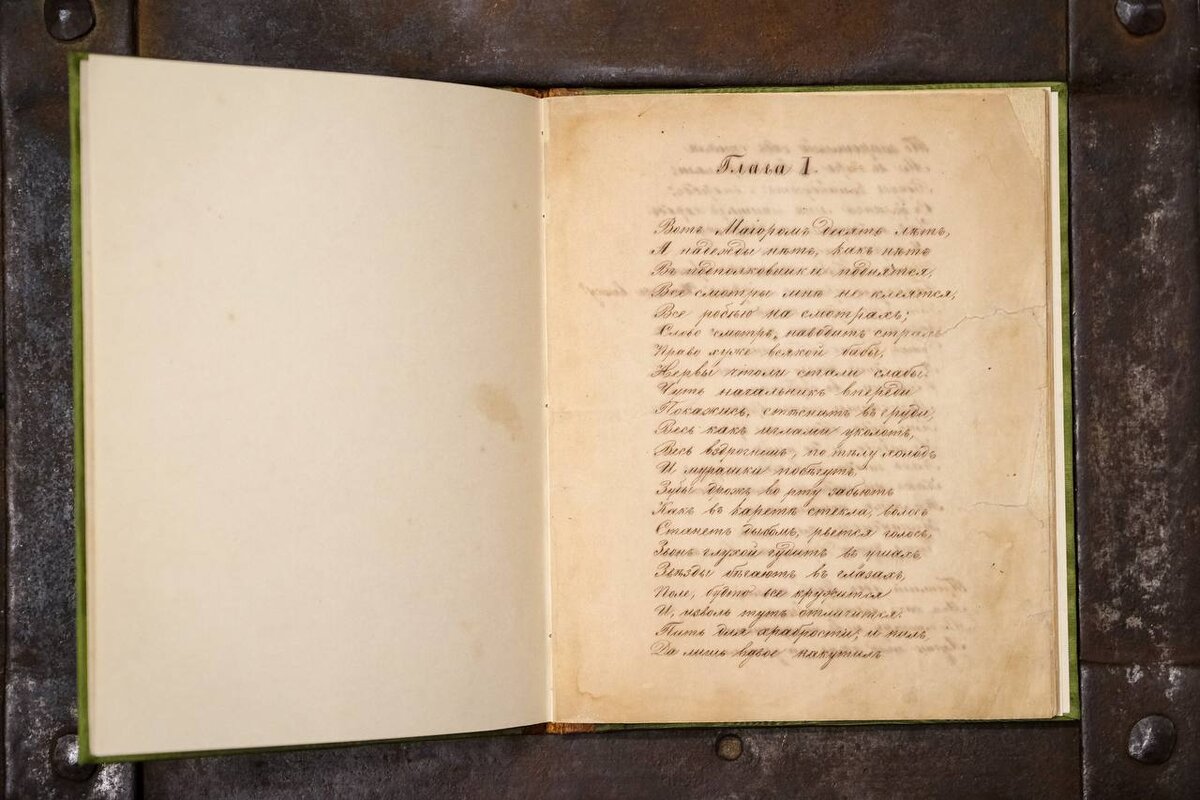 Глава I.
Вотъ Маіоромъ десять лѣтъ,
А надежды нѣтъ, какъ нѣтъ
Въ подполковники подняться,
Всѣ смотры мнѣ не клеятся,
Все робѣю на смотрахъ;
Слово смотръ, наводитъ страхъ
Право хуже всякой бабы,
Нервы чтоли стали слабы
Чуть начальникъ впереди
Покажись, стѣснитъ въ груди,
Весь какъ иглами уколотъ,
Весь вздрогнешь, по тѣлу холодъ
И мурашки побѣгутъ,
Зубы дрожь во рту забьютъ
Какъ въ каретѣ стекла, волосъ
Станетъ дыбомъ, рвется голосъ,
Звонъ глухой гудитъ въ ушахъ,
Звѣзды бѣгаютъ въ глазахъ,
Пол, будто все кружится
И, изволь тутъ отличиться.
Пить для храбрости, и пилъ,
Да лишь вдвое накутилъ